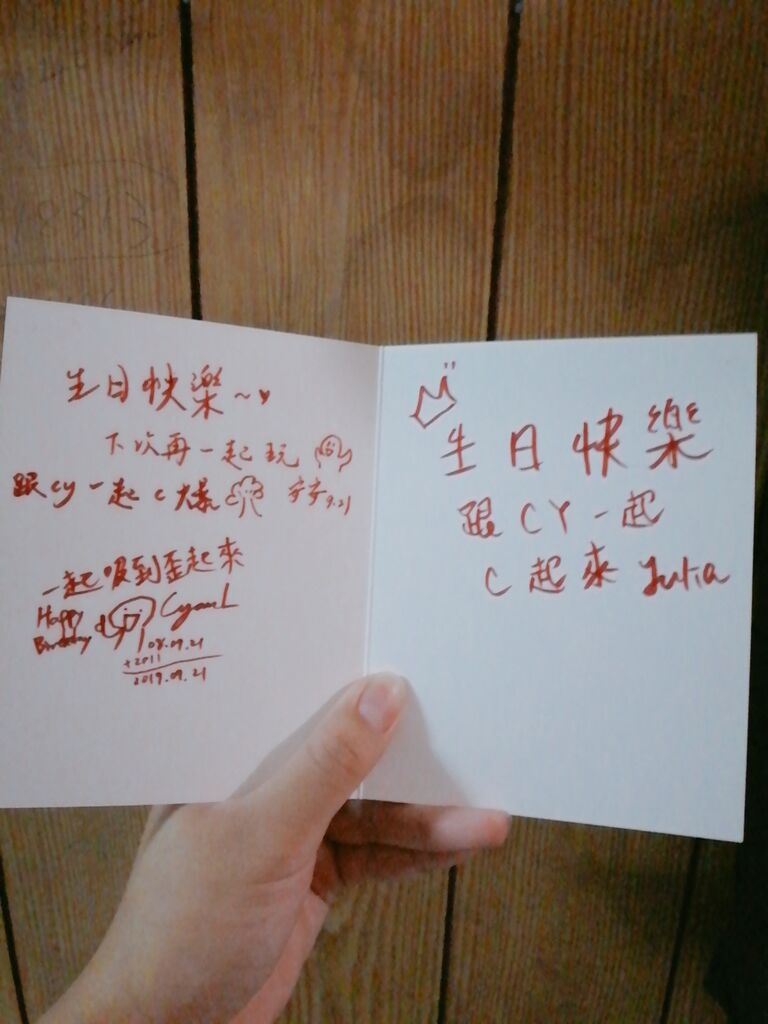 生日快樂~
下次再一起玩
跟cy一起 c 大爆 安安 9.21
一起吸到歪起來
Happy
Birthday
08.09.21
+2011
2019.09.21
生日快樂
跟 CY 一起
C 起來 Julia